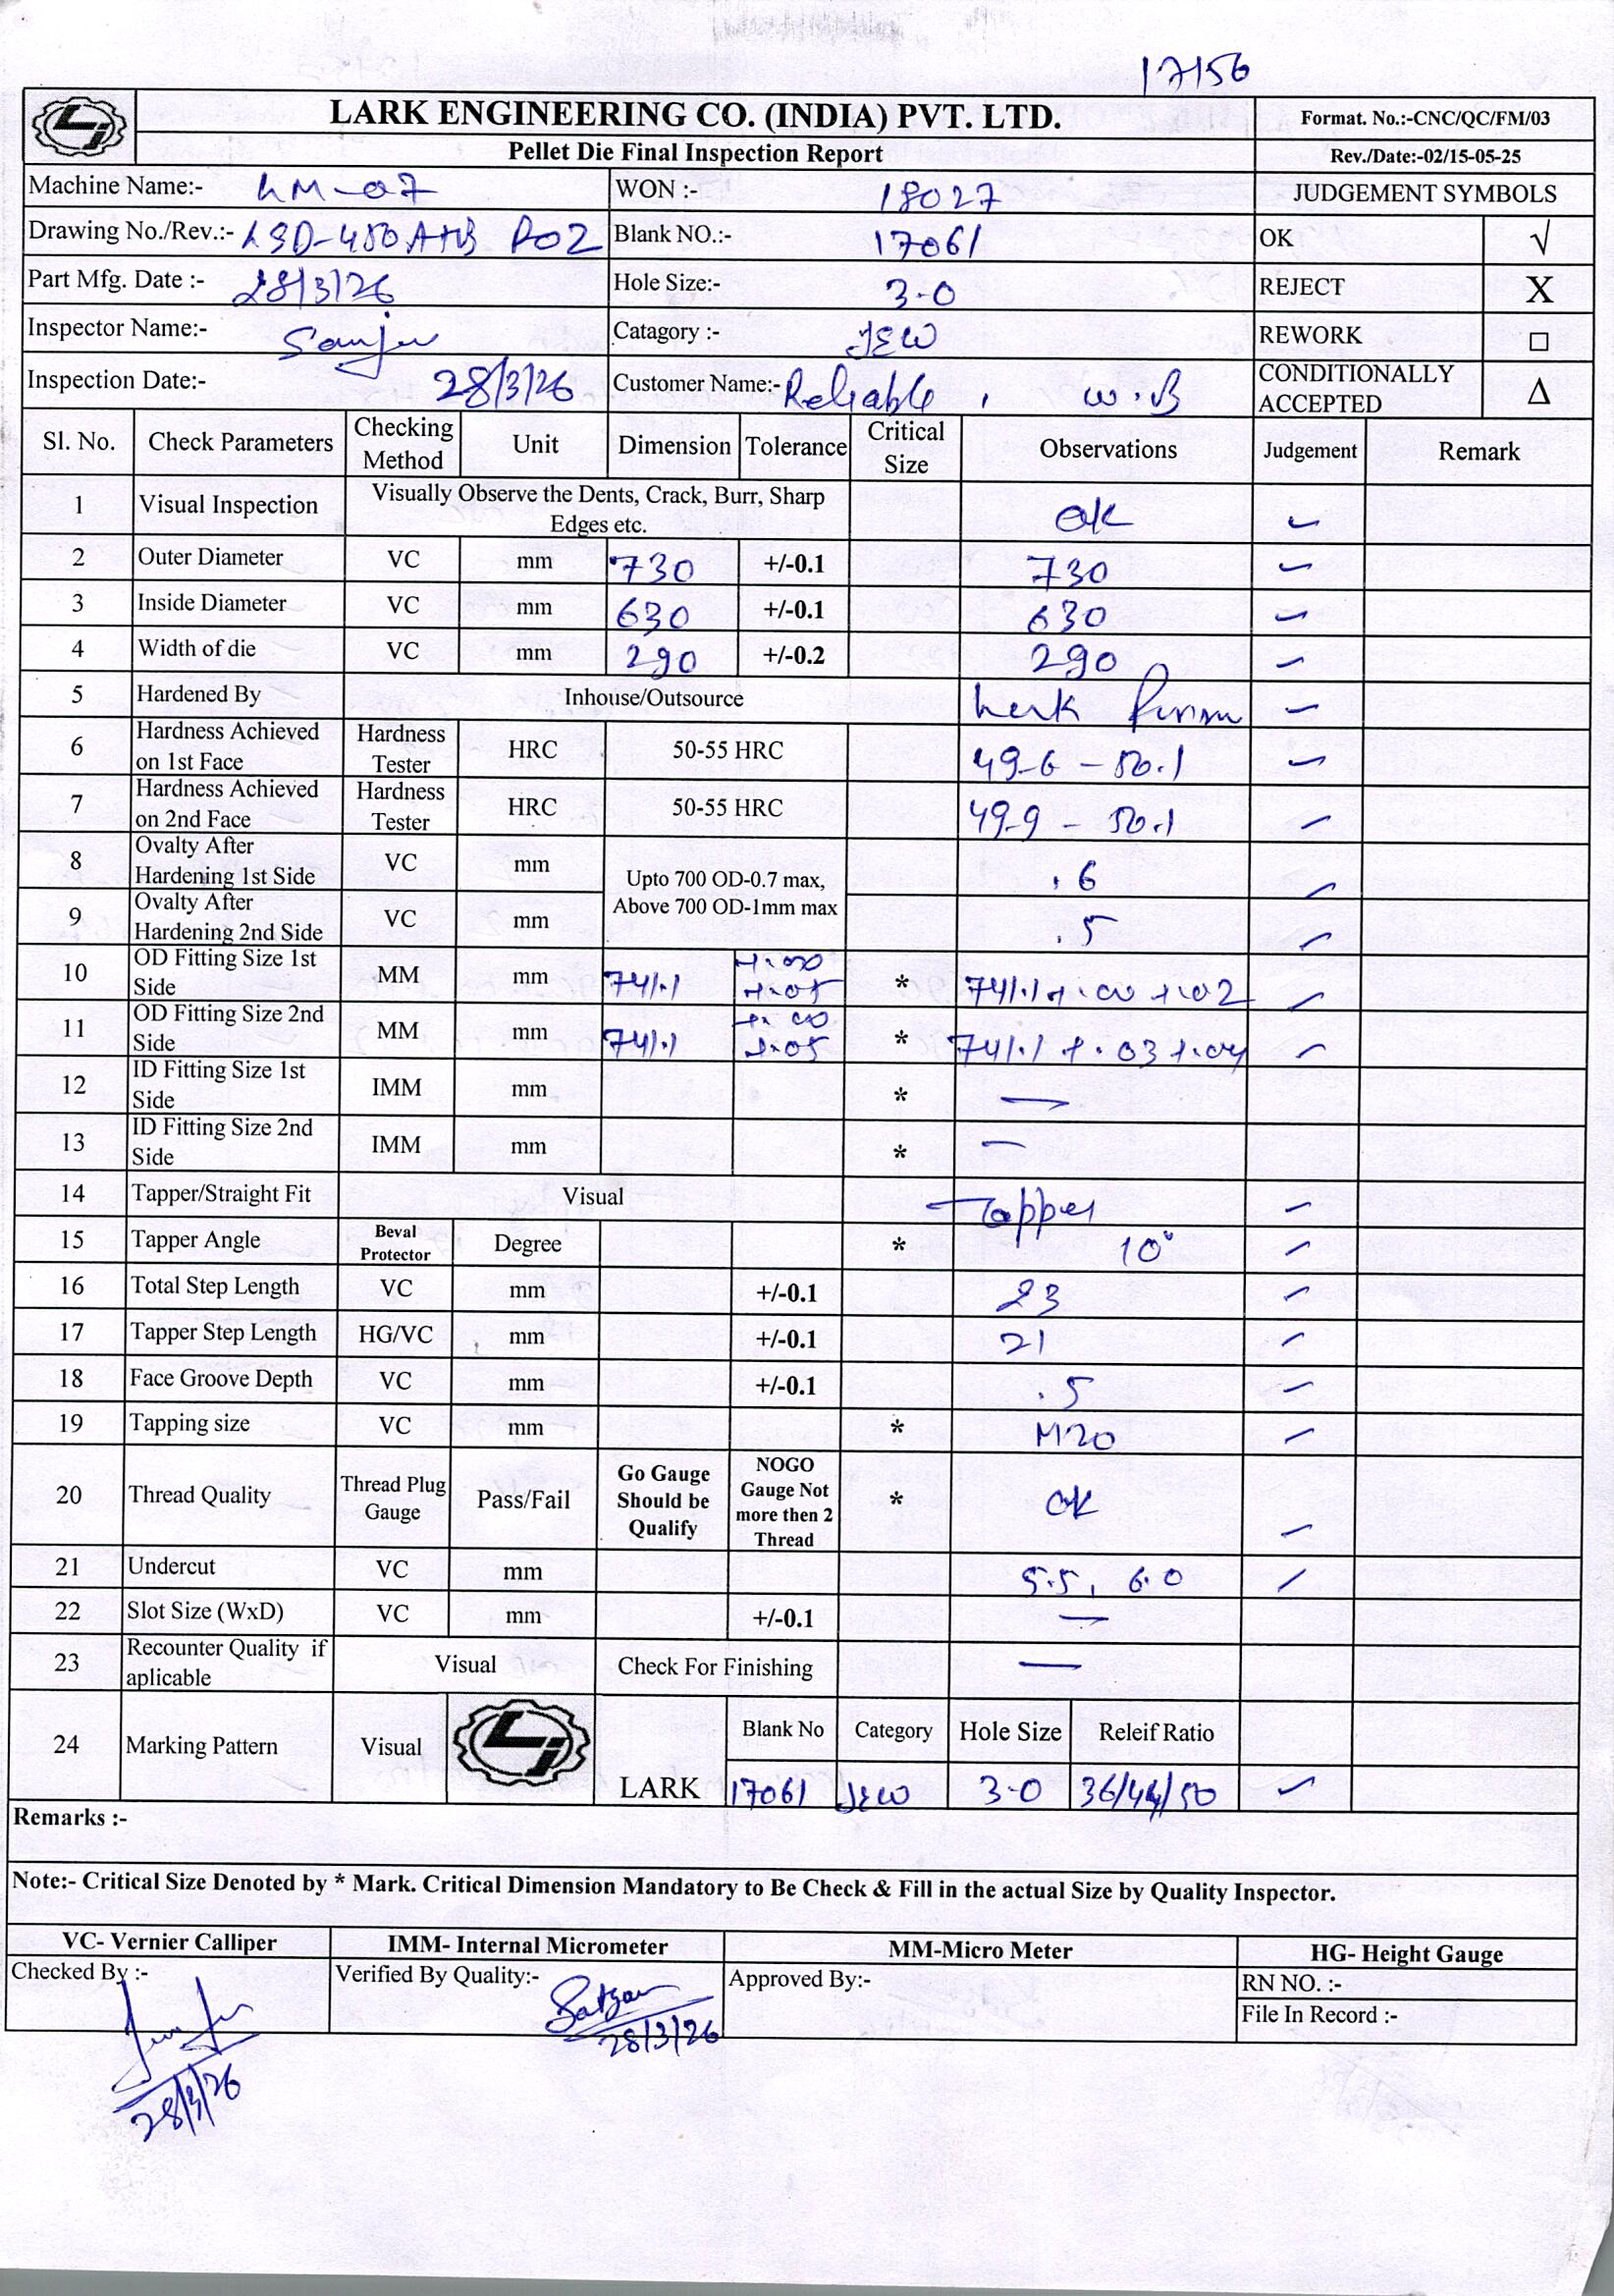 17156
LARK ENGINEERING CO. (INDIA) PVT. LTD.
Format. No.:-CNC/QC/FM/03
Pellet Die Final Inspection Report
Rev./Date:-02/15-05-25
Machine Name:- LM-07 WON :- 18027 JUDGEMENT SYMBOLS
Drawing No./Rev.:- R02 Blank NO.:- 17061 OK √
Part Mfg. Date :- 28/3/26 Hole Size:- 3.0 REJECT X
Inspector Name:- Sanju Catagory :- JEW REWORK □
Inspection Date:- 28/3/26 Customer Name:- Reliable , W.B CONDITIONALLY ACCEPTED Δ
Sl. No. Check Parameters Checking Method Unit Dimension Tolerance Critical Size Observations Judgement Remark
1 Visual Inspection Visually Observe the Dents, Crack, Burr, Sharp Edges etc. ok
2 Outer Diameter VC mm 730 +/-0.1 730
3 Inside Diameter VC mm 630 +/-0.1 630
4 Width of die VC mm 290 +/-0.2 290
5 Hardened By Inhouse/Outsource
6 Hardness Achieved on 1st Face Hardness Tester HRC 50-55 HRC 49.6 - 50.1
7 Hardness Achieved on 2nd Face Hardness Tester HRC 50-55 HRC 49.9 - 50.1
8 Ovalty After Hardening 1st Side VC mm Upto 700 OD-0.7 max, Above 700 OD-1mm max .6
9 Ovalty After Hardening 2nd Side VC mm .5
10 OD Fitting Size 1st Side MM mm 741.1 +.00 +.05 * 741.1 +.00 +.02
11 OD Fitting Size 2nd Side MM mm 741.1 +.00 +.05 * 741.1 +.03 +.04
12 ID Fitting Size 1st Side IMM mm * —
13 ID Fitting Size 2nd Side IMM mm * —
14 Tapper/Straight Fit Visual Tapper
15 Tapper Angle Beval Protector Degree * 10°
16 Total Step Length VC mm +/-0.1 23
17 Tapper Step Length HG/VC mm +/-0.1 21
18 Face Groove Depth VC mm +/-0.1 .5
19 Tapping size VC mm * M20
20 Thread Quality Thread Plug Gauge Pass/Fail Go Gauge Should be Qualify NOGO Gauge Not more then 2 Thread * ok
21 Undercut VC mm 5.5, 6.0
22 Slot Size (WxD) VC mm +/-0.1 —
23 Recounter Quality if aplicable Visual Check For Finishing —
24 Marking Pattern Visual LARK Blank No Category Hole Size Releif Ratio
17061 JEW 3.0 36/44/50
Remarks :-
Note:- Critical Size Denoted by * Mark. Critical Dimension Mandatory to Be Check & Fill in the actual Size by Quality Inspector.
VC- Vernier Calliper IMM- Internal Micrometer MM-Micro Meter HG- Height Gauge
Checked By :- Verified By Quality:- Approved By:- RN NO. :-
File In Record :-
28/3/26
28/3/26